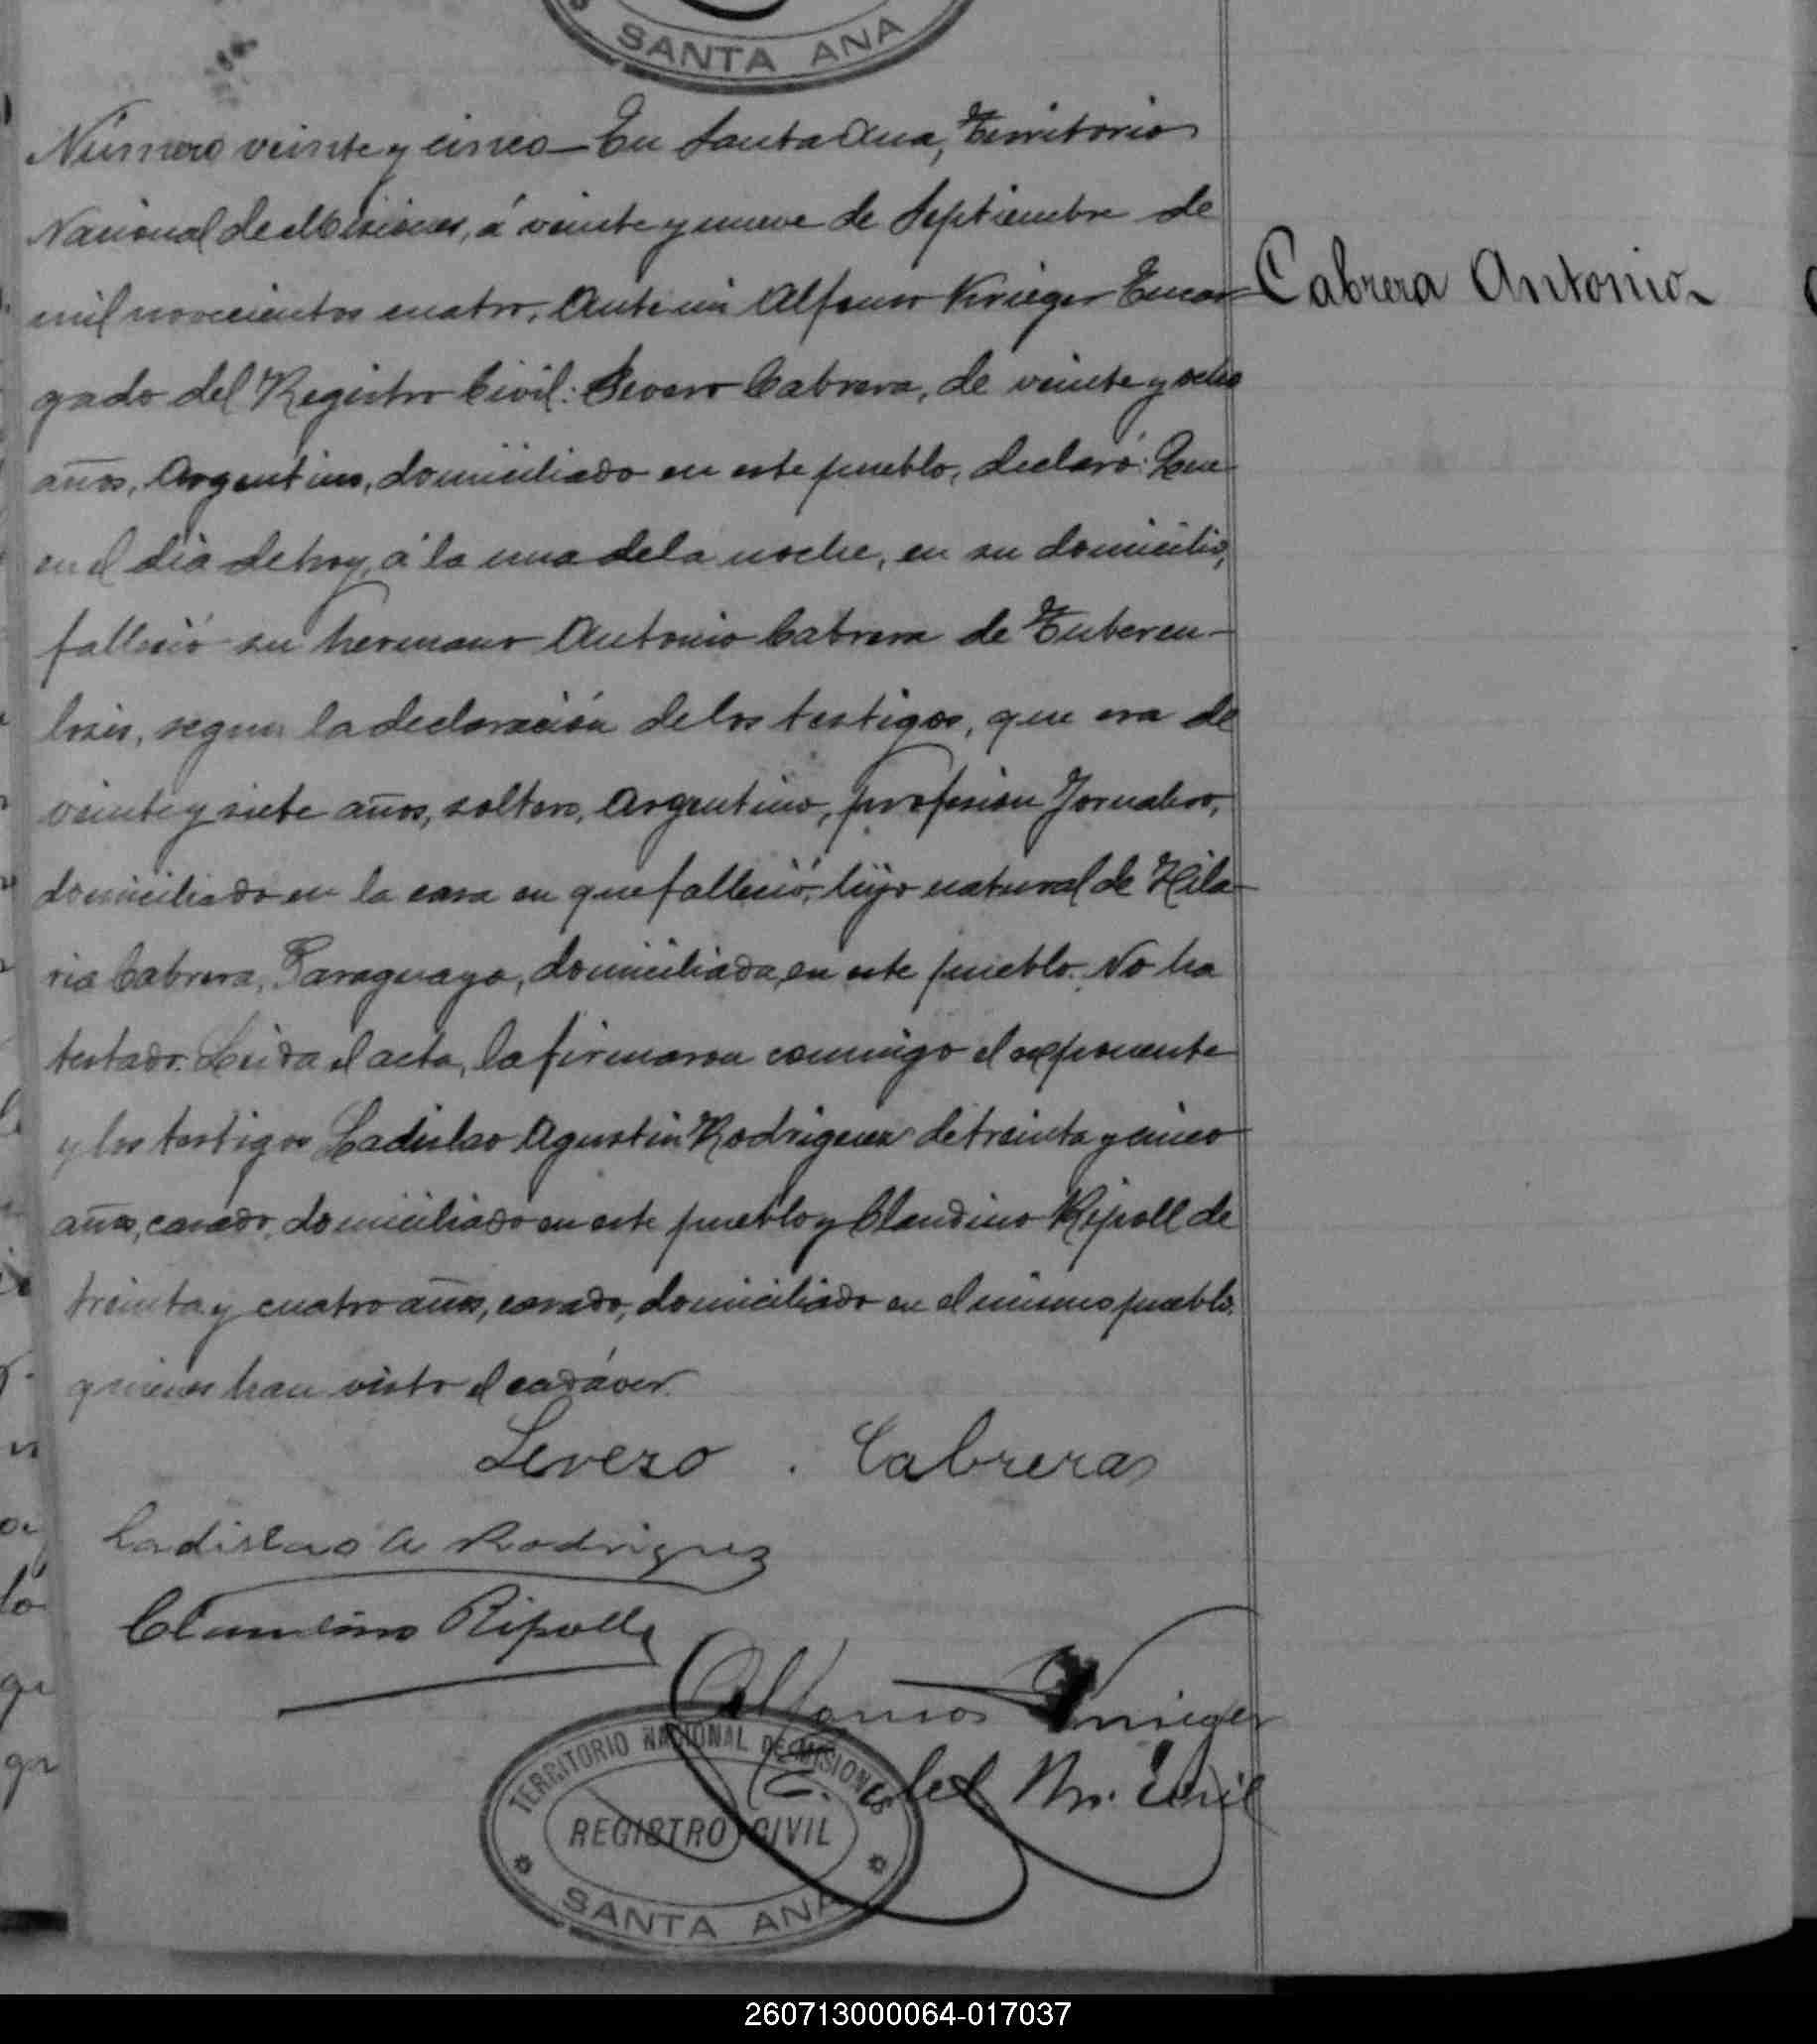 SANTA ANA
Número veinte y cinco — En Santa Ana, Territorio
Nacional de Misiones, á veinte y nueve de Septiembre de
mil novecientos cuatro, Ante mi Alfonso Krieger Encar
gado del Registro Civil: Severo Cabrera, de veinte y ocho
años, Argentino, domiciliado en este pueblo, declaró: Que
en el dia de hoy, á la una de la noche, en su domicilio,
falleció su hermano Antonio Cabrera de Tubercu-
losis, segun la declaración de los testigos, que era de
veinte y siete años, soltero, Argentino, profesion Jornalero,
domiciliado en la casa en que falleció, hijo natural de Hila-
ria Cabrera, Paraguaya, domiciliada, en este pueblo. No ha
testado. Leida el acta, la firmaron conmigo el exponente
y los testigos Ladislao Agustin Rodriguez de treinta y cinco
años, casado, domiciliado en este pueblo y Claudino Ripoll de
treinta y cuatro años, casado, domiciliado en el mismo pueblo,
quienes han visto el cadáver.
Cabrera Antonio
Severo . Cabrera
Ladislao A Rodriguez
Claudino Ripoll
Alfonso Krieger
E. del Rn. Civil
TERRITORIO NACIONAL DE MISIONES
REGISTRO CIVIL
SANTA ANA
260713000064-017037